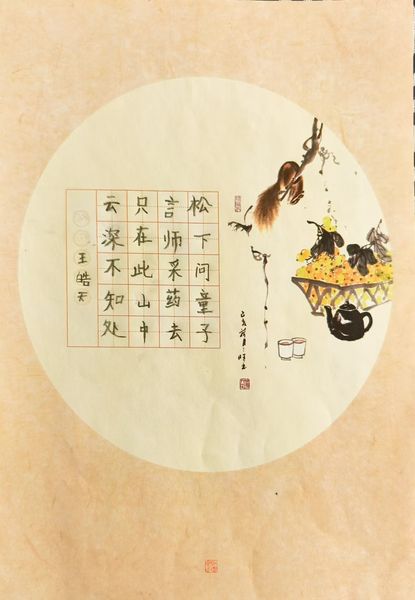 松下问童子
言师采药去
只在此山中
云深不知处
王皓天